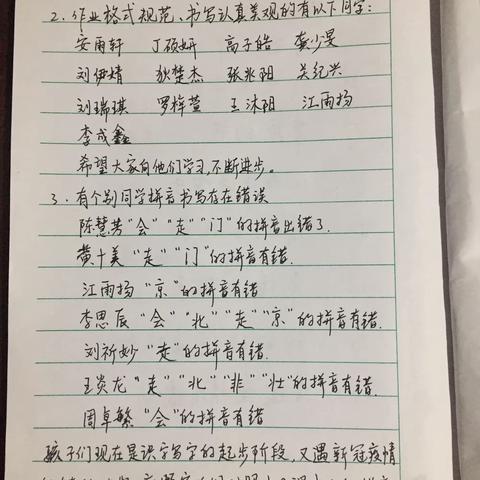 2. 作业格式规范、书写认真美观的有以下同学:
安雨轩 丁硕妍 高子皓 龚少昊
刘伊婧 狄楚杰 张兆阳 关纪兴
刘瑞琪 罗梓萱 王沐阳 江雨扬
李成鑫
希望大家向他们学习,不断进步。
3. 有个别同学拼音书写存在错误
陈慧芳“会”“走”“门”的拼音出错了.
黄十美“走”“门”的拼音有错.
江雨扬“京”的拼音有错
李思辰“会”“北”“走”“京”的拼音有错.
刘祈妙“走”的拼音有错.
王炎龙“走”“北”“非”“壮”的拼音有错.
周卓繁“会”的拼音有错
孩子们现在是识字写字的起步阶段,又遇新冠疫情